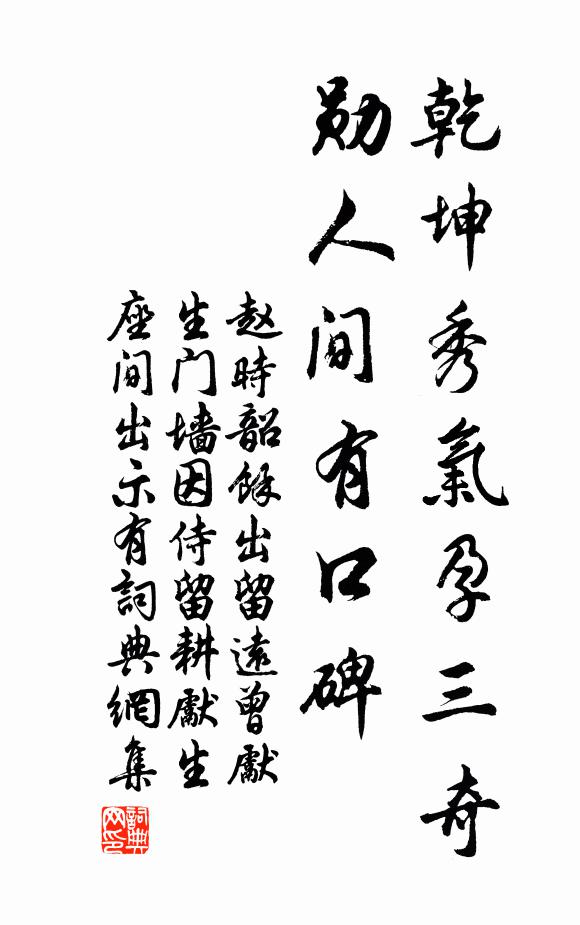 乾坤秀氣孕三奇
勋人间有口碑
赵時韶餘出留遠曾獻
生门墙因侍留耕獻生
座间出示有詞典網集
詞典网印